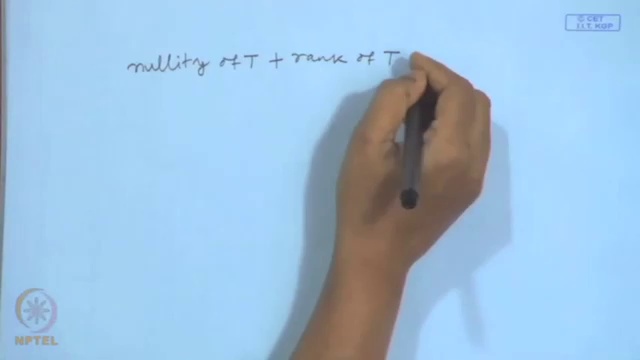 © CET
I.I.T. KGP
nullity of T + rank of T
NPTEL